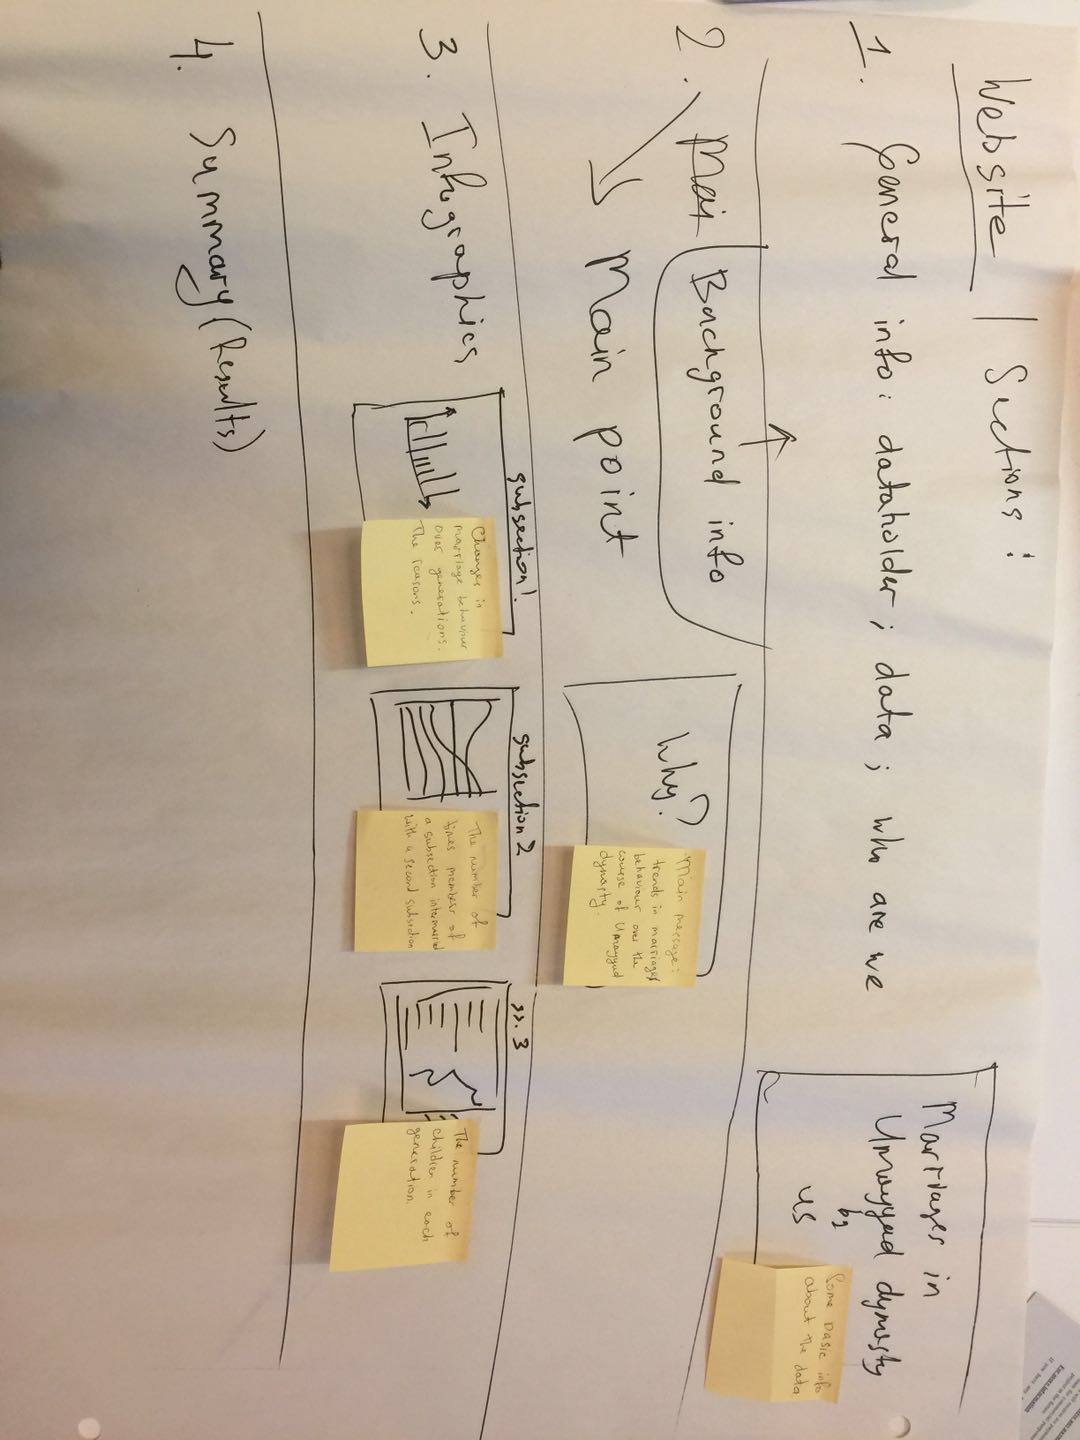 Website | Sections:
1. General info: dataholder; data; who are we
Marriages in
Umayyad dynasty
by
us
Some basic info
about the data
2. Mai Background info
Main point
Why?
Main message:
trends in marriages
behaviour over the
course of Umayyad
dynasty.
3. Infographics
subsection 1.
Changes in
marriage behaviour
over generations.
The reasons.
subsection 2
The number of
times member of
a subsection intermarried
with a second subsection
ss. 3
The number of
children in each
generation.
4. Summary (Results)
If you have any
For more information